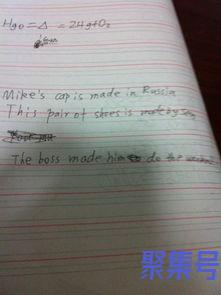 Hgo = Δ = 2Hg+O2
Mike's cap is made in Russia
This pair of shoes is made by
The boss made him do the
聚集号